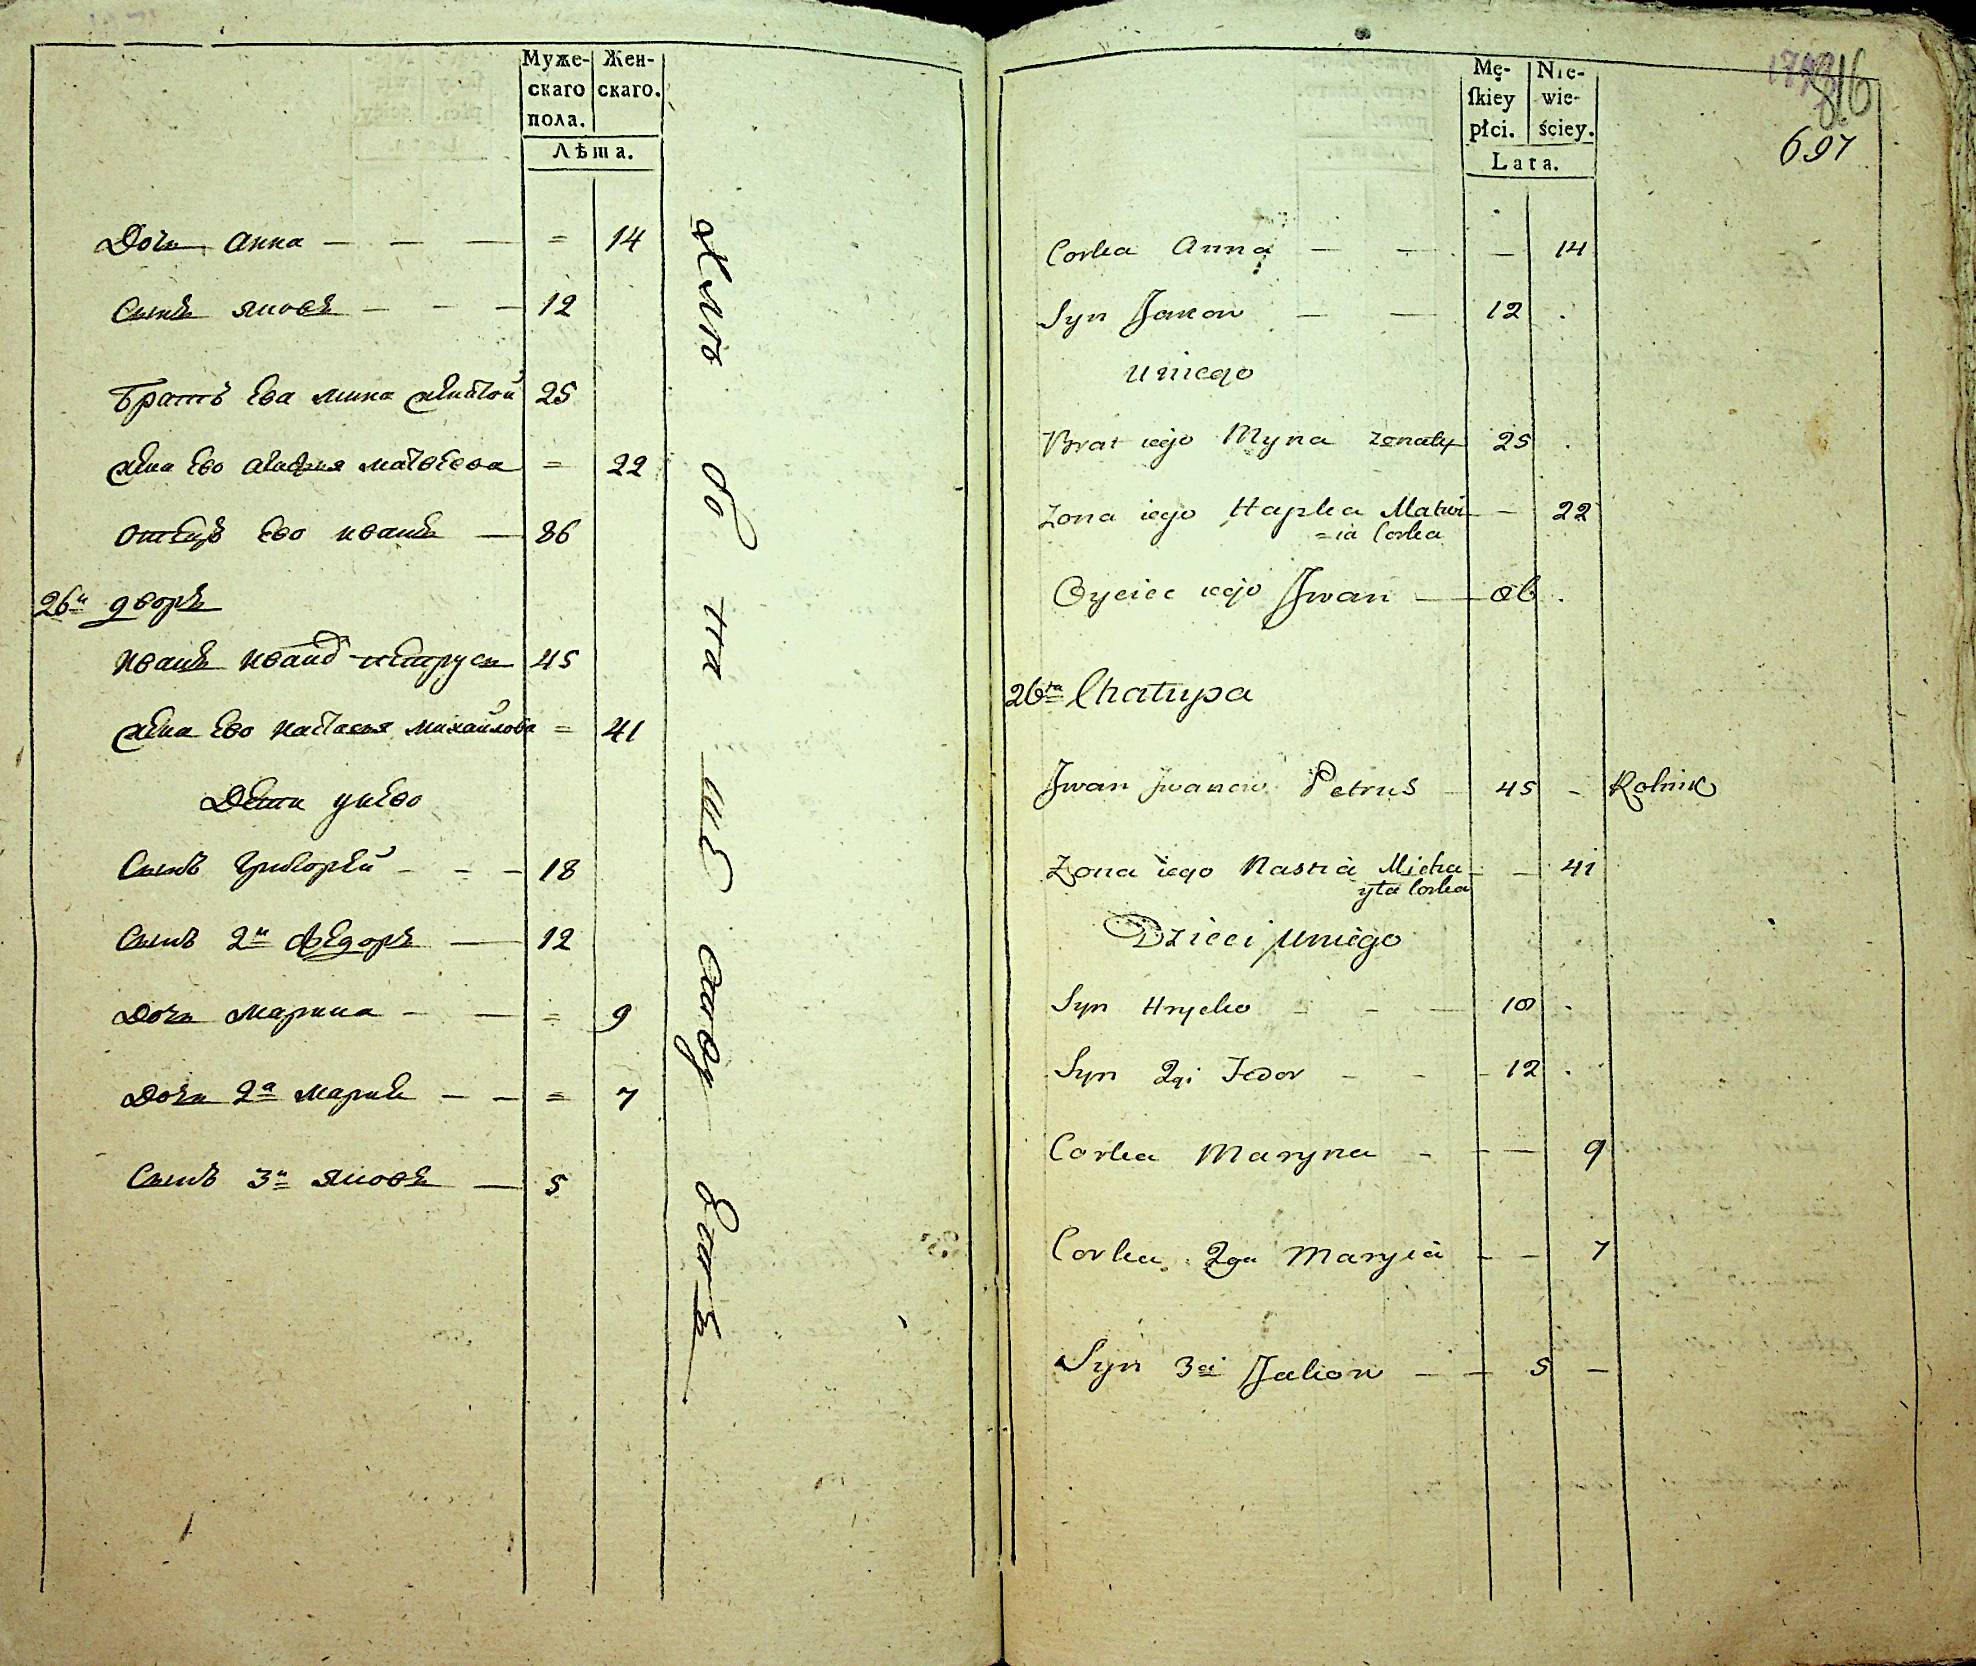 Муже-
скаго
пола.
Жен-
скаго.
Лѣта.
Дочь Анна — — — = 14
Сынъ Яковъ — — — 12
Братъ Ево Мина женатой 25
Жена Ево Агафия Матвеева = 22
Отецъ Ево Иванъ — 86
26й дворъ
Иванъ Ивановъ Петрусь 45
Жена Ево Настасья Михайлова = 41
Дети у нево
Сынъ Григорей - - - 18
Сынъ 2й Федоръ — 12
Дочь Марина - — = 9
Дочь 2а Марья — — = 7
Сынъ 3й Яковъ — 5
Mę-
ſkiey
płci.
Nie-
wie-
ściey.
Lata.
816
697
Corka Anna — — — 14
Syn Jakow — — 12 .
u niego
Brat iego Myna zonaty 25 .
Zona iego Hapka Matwi — 22
=ia Corka
Oyciec iego Iwan — 86 .
26ta Chałupa
Iwan Iwanow Petrus — 45 - Rolnik
Zona iego Nastia Micha — — 41
yła Corka
Dzieci u niego
Syn Hryćko - - — 18 .
Syn 2gi Fedor - - - 12 .
Corka Maryna - - — 9
Corka 2ga Maryia - — 7
Syn 3ci Jakow — — 5 —